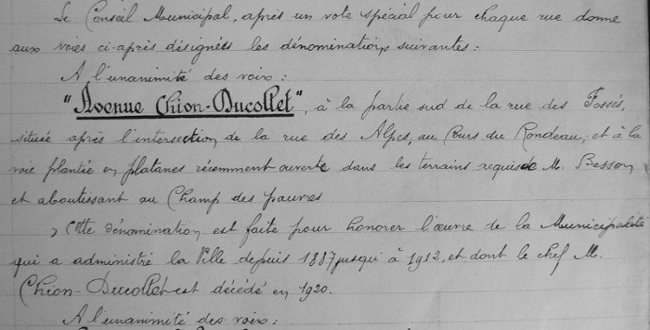 Le Conseil Municipal, après un vote spécial pour chaque rue donne
aux voies ci-après désignées les dénominations suivantes :
A l'unanimité des voix :
"Avenue Chion-Ducollet", à la partie sud de la rue des Fossés,
située après l'intersection de la rue des Alpes, au Cours du Rondeau, et à la
voie plantée en platanes récemment ouverte dans les terrains requis de M. Besson
et aboutissant au Champ des pauvres
Cette dénomination est faite pour honorer l'œuvre de la Municipalité
qui a administré la Ville depuis 1887 jusqu'à 1912, et dont le chef M.
Chion-Ducollet est décédé en 1920.
A l'unanimité des voix :